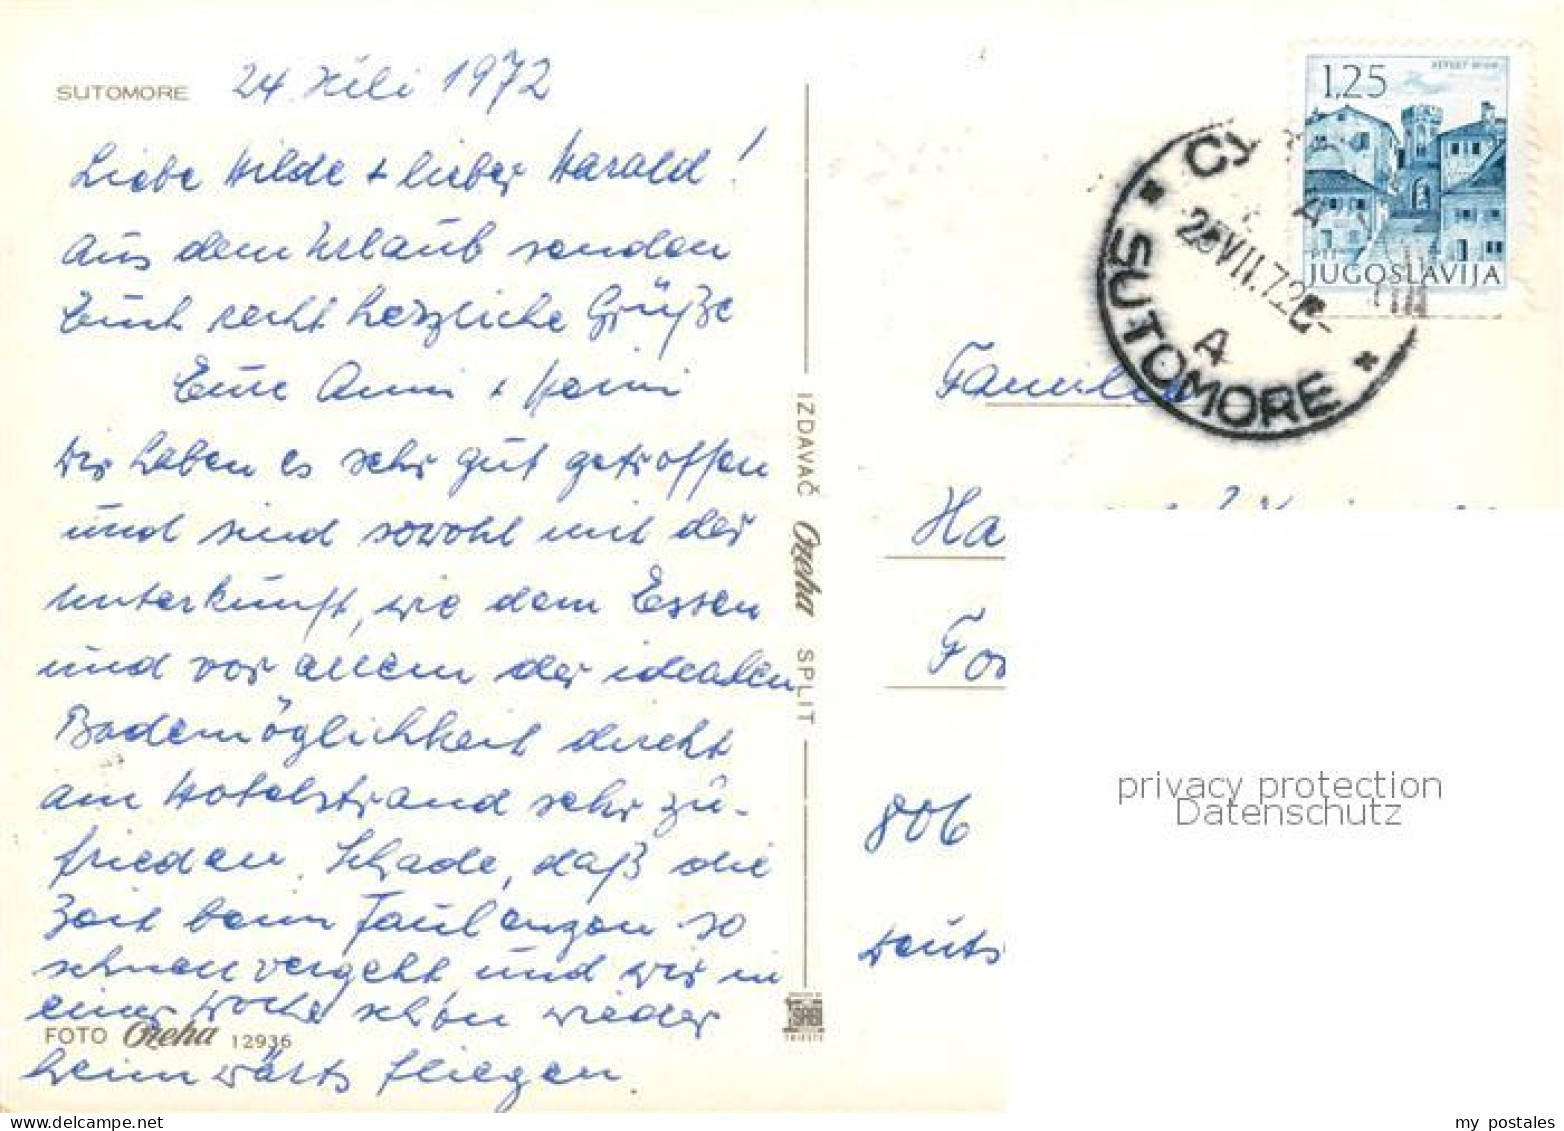 SUTOMORE
24. Jüli 1972
Liebe Hilde + lieber Harald!
Aus dem Urlaub senden
Euch recht herzliche Grüße
Eure Anni + Heini
Wir haben es sehr gut getroffen
und sind sowohl mit der
Unterkunft, wie dem Essen
und vor allem der idealen
Bademöglichkeit direkt
am Hotelstrand sehr zu-
frieden. Schade, daß die
Zeit beim Faulenzen so
schnell vergeht und wir in
einer Woche schön wieder
heimwärts fliegen.
FOTO Ozeha 12936
IZDAVAČ Ozeha SPLIT
TRIESTE
1,25
JUGOSLAVIJA
SUTOMORE
25 VII.72
A
Familie
Ha
For
806
Deuts
privacy protection
Datenschutz
my postales